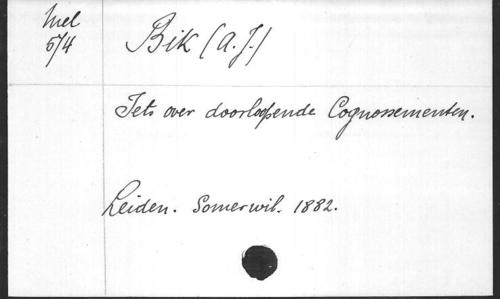 Mel
5/4
Bik (A.J.)
Iets over doorloopende Cognossementen.
Leiden. Somerwil. 1882.